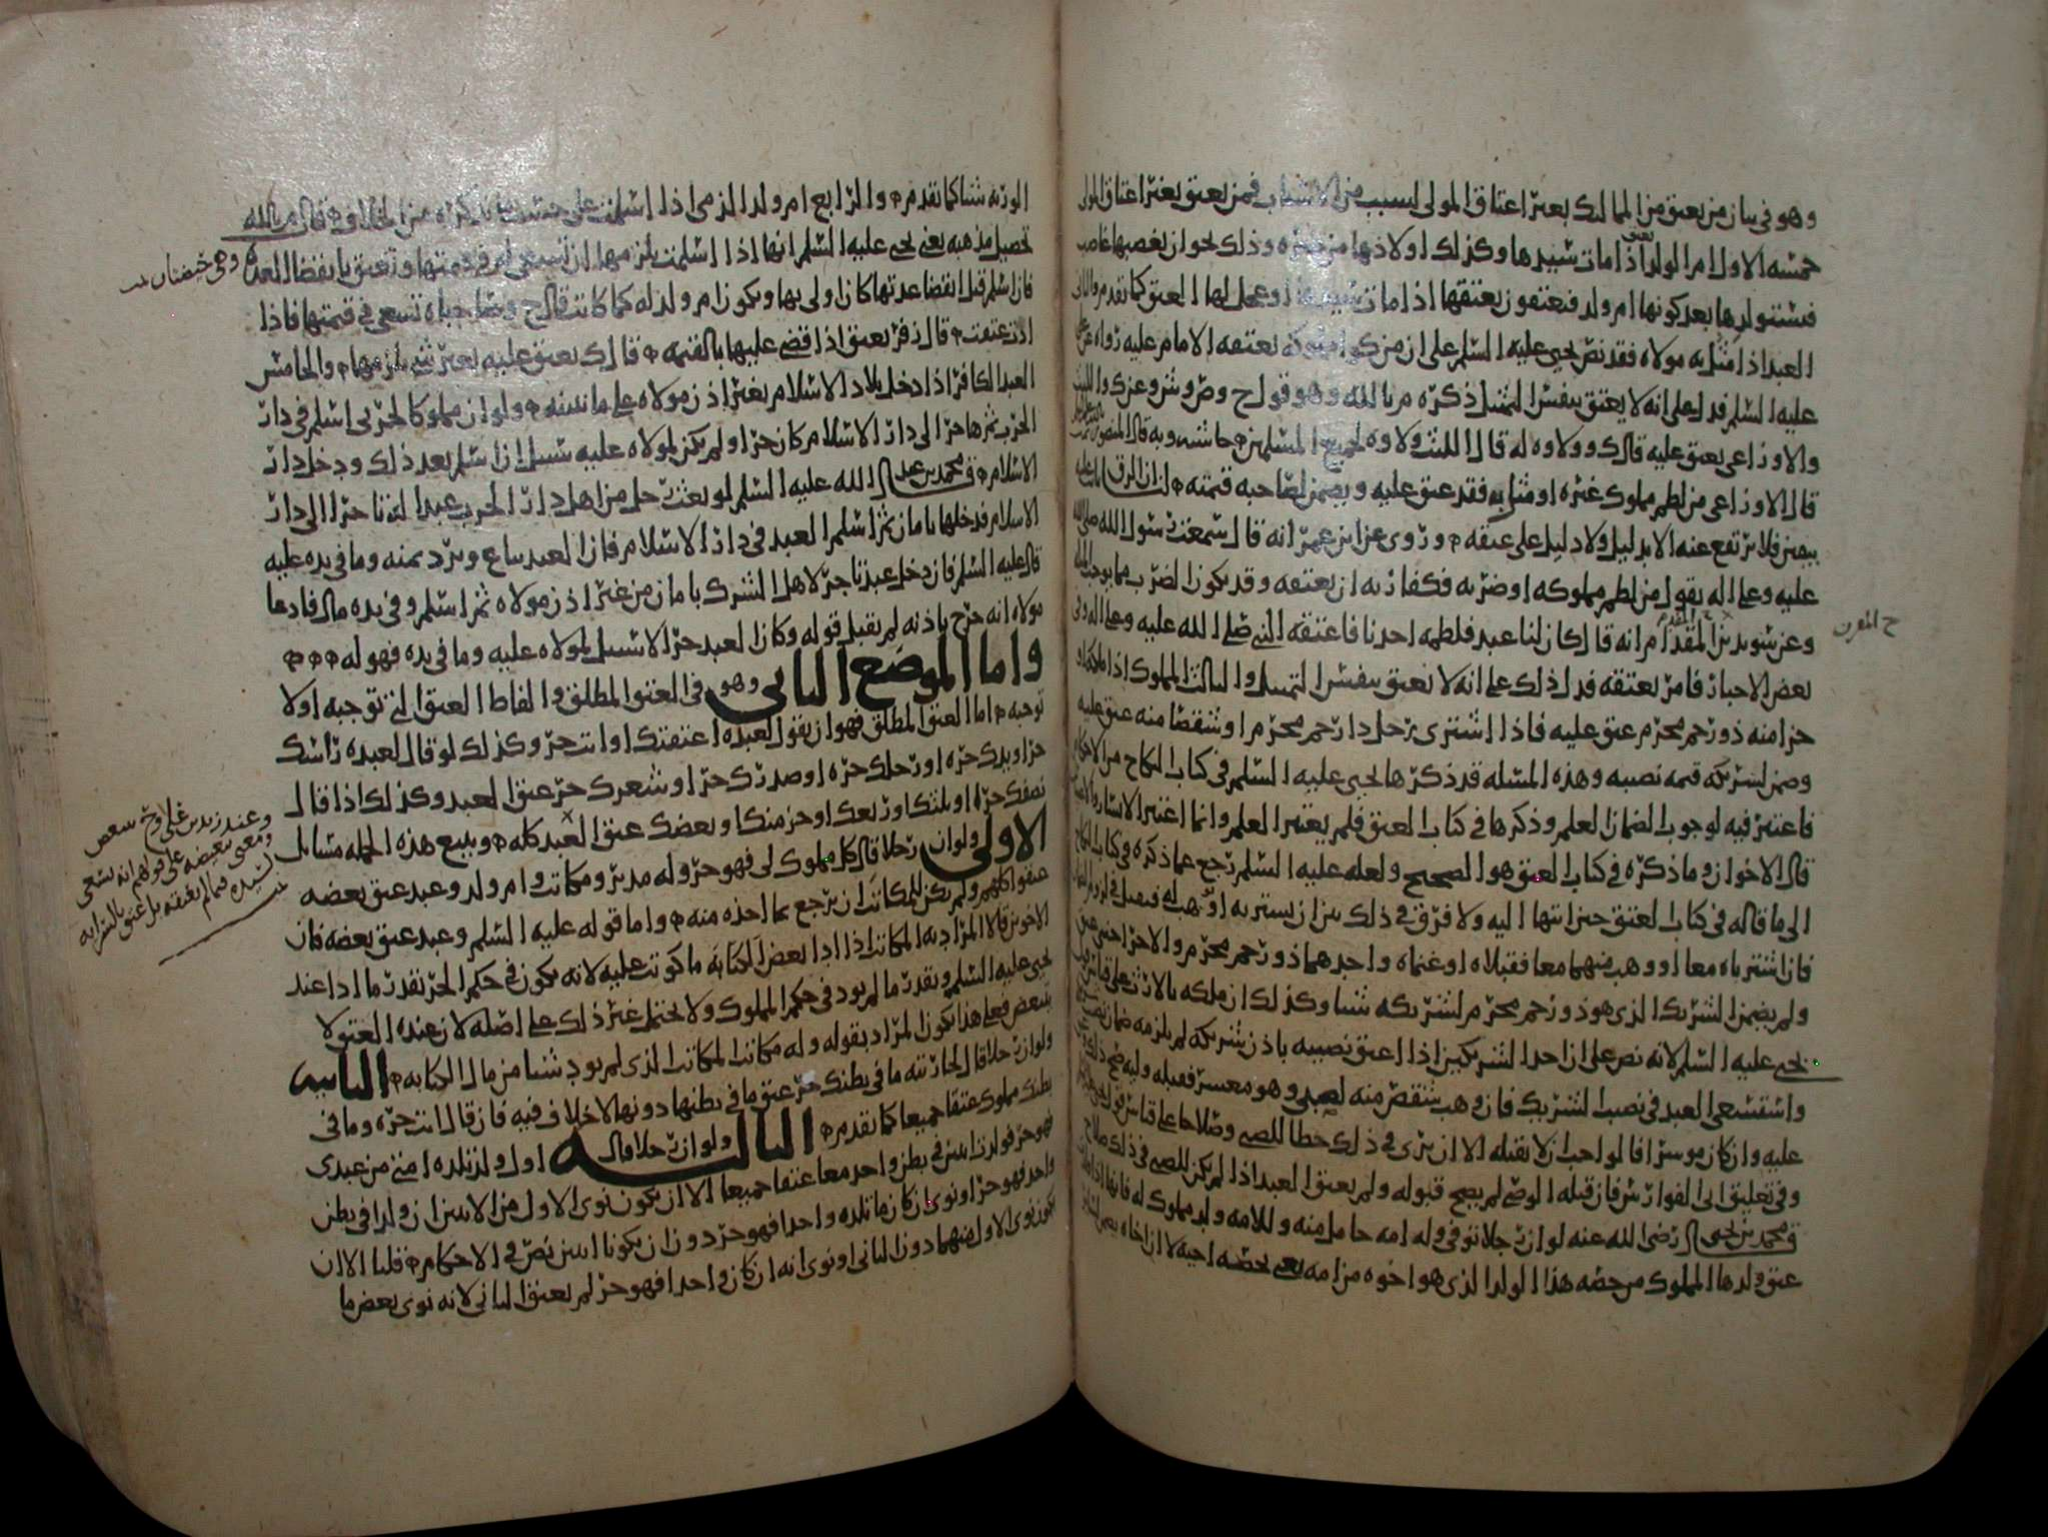 وهو في بيان من يعتق من المماليك بغير اعتاق المولى لسبب من الاسباب فمن يعتق بغير اعتاق المولى
خمسه الاول ام الولد اذا مات سيدها وكذلك اولادها من غيره وذلك نحو ان يغصبها غاصب
فيستولدها بعد كونها ام ولد فيعتقون بعتقها اذا مات سيدها او عجل لها العتق كما تقدم والثاني
العبد اذا مثل به مولاه فقد نص يحيى عليه السلم على ان من مملوكه يعتقه الامام عليه رواه عن علي
عليه السلم فدل على انه لا يعتق بنفس التمثيل ذكره م بالله وهو قول ح وص وش وعند ك والليث
والاوزاعي يعتق عليه قال ك وولاوه له قال الليث ولاوه لجميع المسلمين
قال الاوزاعي من لطم مملوك غيره او مثل به فقد عتق عليه ويضمن لصاحبه قيمته لنا ان الرق ثابت عليه
بيقين فلا يرتفع عنه الا بدليل ولا دليل على عتقه وروي عن ابن عمر انه قال سمعت رسول الله صلى الله
عليه وعلى اله يقول من لطم مملوكه او ضربه فكفارته ان يعتقه وقد يكون الضرب مما يوجب المثله
وعن سويد بن المقدام انه قال كان لنا عبد فلطمه احدنا فاعتقه النبي صلى الله عليه وعلى اله وفي
ح المقرن
بعض الاخبار فامر بعتقه فدل ذلك على انه لا يعتق بنفس التمثيل والثالث المملوك اذا ملكه او
جزا منه ذو رحم محرم عتق عليه فاذا اشترى رجل ذا رحم محرم او شقصا منه عتق عليه
وضمن لشريكه قيمه نصيبه وهذه المسله قد ذكرها يحيى عليه السلم في كتاب النكاح من الاحكام
فاعتبر فيه لوجوب الضمان العلم وذكرها في كتاب العتق فلم يعتبر العلم وانما اعتبر الايسار والاعسار
قال الاخوان وما ذكره في كتاب العتق هو الصحيح ولعله عليه السلم رجع عما ذكره في كتاب النكاح
الى ما قاله في كتاب العتق حين انتها اليه ولا فرق في ذلك بين ان يشتريه او يهب له فيقبل
فان اشترياه معا او وهب منهما معا فقبلاه او غنماه واحدهما ذو رحم محرم والاخر اجنبي عتق
ولم يضمن الشريك الذي هو ذو رحم محرم لشريكه شيا وكذلك ان ملكه بالارث على قياس قول
يحيى عليه السلم لانه نص على ان احد الشريكين اذا اعتق نصيبه باذن شريكه لم يلزمه ضمان نصيب
واستسعى العبد في نصيب الشريك فان وهب شقص منه لصبي وهو معسر فقبله وليه صح ذلك
عليه وان كان موسرا فالواجب ان لا يقبله الا ان يرى في ذلك حظا للصبي وصلاحا على قياس قول يحيى
وفي تعليق ابي الفوارس فان قبله الوصي لم يصح قبوله ولم يعتق العبد اذا لم يكن للصبي في ذلك صلاح
ق محمد بن يحيى رضي الله عنه لو ان رجلا توفي وله امه حامل منه وللامه ولد مملوك له
عتق ولدها المملوك من حصه هذا الولد الذي هو اخوه من امه يعني بحصه اخيه لا ان اخاه
الورثه شيا كما تقدم والرابع ام ولد الذمي اذا اسلمت على حسب ما نذكره من الخلاف قال م بالله
تحصيل مذهبه يعني يحيى عليه السلم انها اذا اسلمت يلزمها ان تسعى له في قيمتها وتعتق بانقضا العده
وهي حيضتان
فان اسلم قبل انقضا عدتها كان اولى بها ويكون ام ولد له كما كانت قال ح وصاحباه تسعى في قيمتها فاذا
ادت عتقت قال زفر يعتق اذا قضي عليها بالقيمه قال ك يعتق عليه بغير شي يلزمها والخامس
العبد الكافر اذا دخل بلاد الاسلام بغير اذن مولاه على ما نبينه ولو ان مملوكا لحربي اسلم في دار
الحرب ثم هاجر الى دار الاسلام كان حرا ولم يكن لمولاه عليه سبيل ان اسلم بعد ذلك ودخل دار
الاسلام ق محمد بن عبد الله عليه السلم لو بعث رجل من اهل دار الحرب عبدا له تاجرا الى دار
الاسلام فدخلها بامان ثم اسلم العبد في دار الاسلام فان العبد يباع ويرد ثمنه وما في يده عليه
قال عليه السلم فان دخل عبد تاجر لاهل الشرك بامان من غير اذن مولاه ثم اسلم وفي يده مال فادعا
مولاه انه خرج باذنه لم يقبل قوله وكان العبد حرا لا سبيل لمولاه عليه وما في يده فهو له
واما الموضع الثاني وهو في العتق المطلق والفاظ العتق التي توجبه اولا
توجبه اما العتق المطلق فهو ان يقول لعبده اعتقتك او انت حر وكذلك لو قال لعبده راسك
حر او يدك حره او رجلك حره او صدرك حر او شعرك حر عتق العبد وكذلك اذا قال
نصفك حر او ثلثك او ربعك او جز منك او بعضك عتق العبد كله ويتبع هذه الجمله مسايل
الاولى ولو ان رجلا قال كل مملوك لي فهو حر وله مدبر ومكاتب وام ولد وعبد عتق بعضه
وعند زيد بن علي وح يتبعض
ومعنى تبعيضه على قولهم انه يسعى
لسيده فيما لم يعتقه بل عتق بالسرايه
عتقوا كلهم ولم يكن للمكاتب ان يرجع بما اخذه منه واما قوله عليه السلم وعبد عتق بعضه فان
الاخوين قالا المراد به المكاتب اذا ادا بعض الكتابه ما كوتب عليه لانه يكون في حكم الحر بقدر ما ادا عند
يحيى عليه السلم وبقدر ما لم يود في حكم المملوك ولا يحتمل غير ذلك على اصله لان عنده العتق لا
يتبعض فعلى هذا يكون المراد بقوله وله مكاتب المكاتب الذي لم يود شيا من مال الكتابه الثانيه
ولو ان رجلا قال لجاريته ما في بطنك حر عتق ما في بطنها دونها لا خلاف فيه فان قال انت حره وما في
بطنك مملوك عتقا جميعا كما تقدم الثالثه ولو ان رجلا قال اول ولد تلده امتي من عبدي
فهو حر فولدت اثنين في بطن واحد معا عتقا جميعا الا ان يكون نوى الاول من الاثنين ان ولدا في بطن
واحد فهو حر او نوى ان كان ما تلده واحدا فهو حر دون ان يكونا اثنين نص في الاحكام قلنا الا ان
يكون نوى الاول منهما دون الثاني او نوى انه ان كان واحدا فهو حر لم يعتق الثاني لانه نوى بعض ما